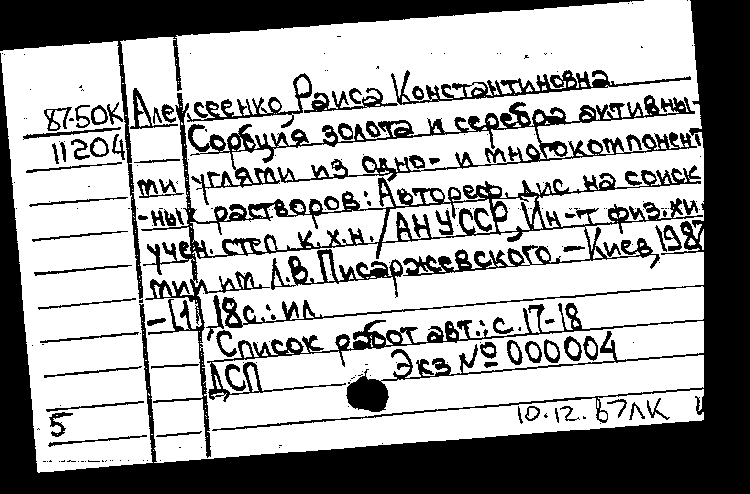 87-50К Алексеенко, Раиса Константиновна.
11204 Сорбция золота и серебра активны-
ми углями из одно- и многокомпонент
-ных растворов: Автореф. дис. на соиск
учен. степ. к.х.н. / АН УССР, Ин-т физ. хи
мии им. Л.В. Писаржевского. – Киев, 1987
– [1] 18 с.: ил.
Список работ авт.: с. 17-18
ДСП Экз № 000004
5 10.12.87 ЛК